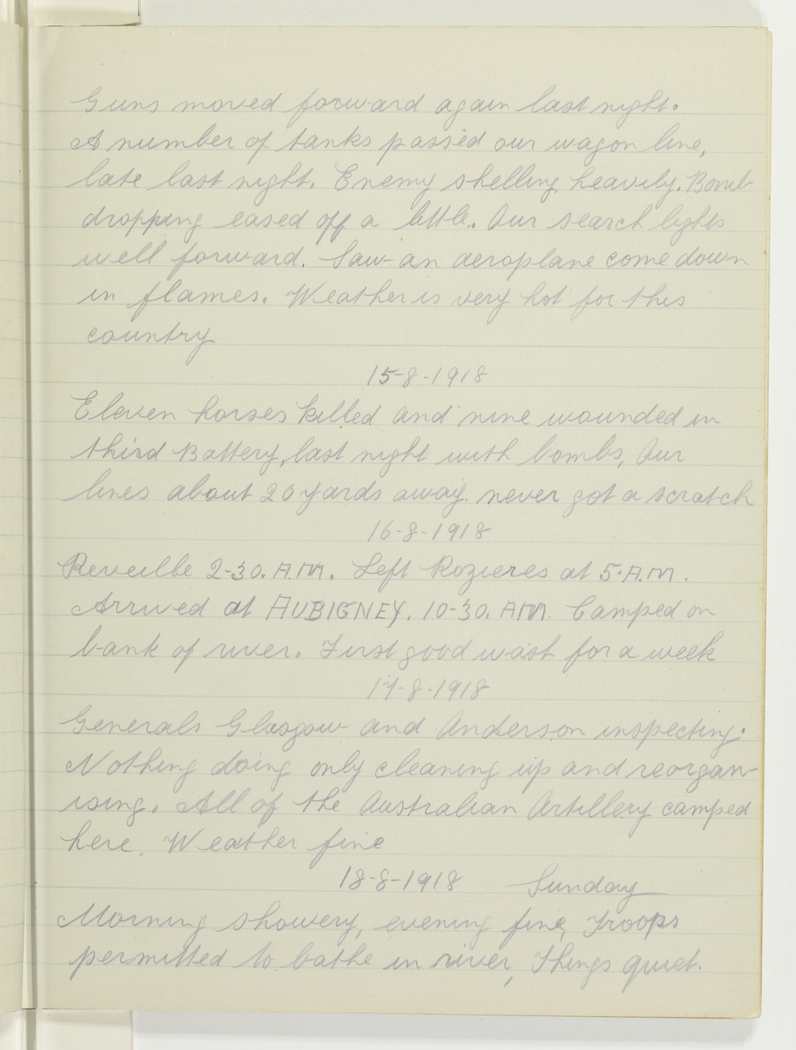 Guns moved forward again last night.
A number of tanks passed our wagon line,
late last night. Enemy shelling heavily. Bomb
dropping eased off a little. Our search lights
well forward. Saw an aeroplane come down
in flames. Weather is very hot for this
country
15-8-1918
Eleven horses killed and nine wounded in
third Battery, last night with bombs, Our
lines about 20 yards away. never got a scratch
16-8-1918
Reveille 2-30. A.M. Left Rozieres at 5.A.M.
Arrived at AUBIGNEY. 10-30. AM. Camped on
bank of river. First good wash for a week
17-8-1918
Generals Glasgow and Anderson inspecting.
Nothing doing only cleaning up and reorgan-
ising. All of the Australian Artillery camped
here. Weather fine
18-8-1918 Sunday
Morning showery, evening fine, Troops
permitted to bathe in river, Things quiet.